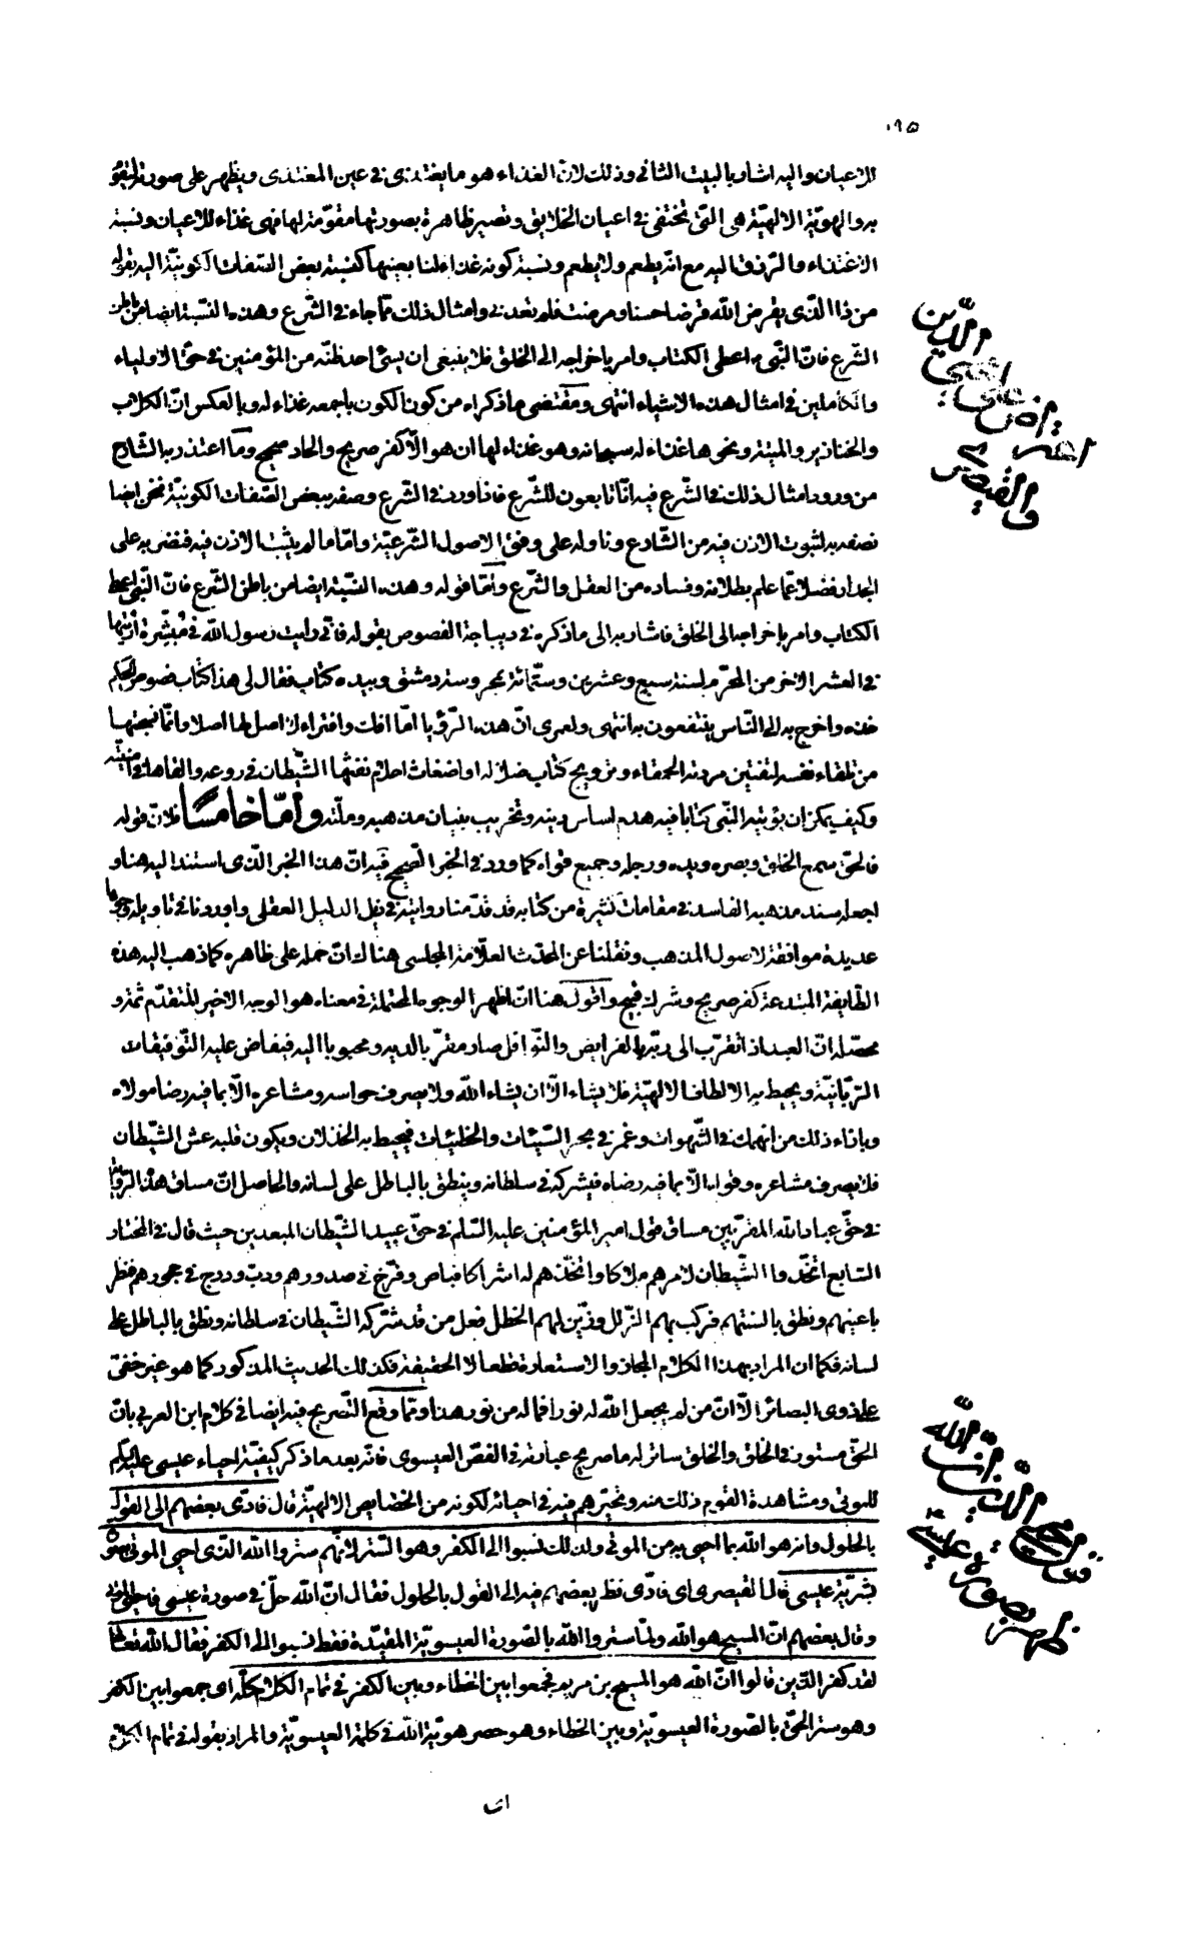 للاعيان واليه اشار بالبيت الثانى وذلك لانّ الغذاء هو ما يغتذى فى عين المغتذى ويظهر على صورته ليقوّ
به والهويّة الالهيّة هى التى تختفى فى اعيان الخلايق وتصير ظاهرة بصورتها مقوّمة لها فهى غذاء للاعيان ونسبة
الاغتذاء والرزق اليه مع انّه يطعم ولا يطعم ونسبة كونه غذاء لنا بعينها كنسبة بعض الصّفات الكونيّة اليه بقوله
من ذا الّذى يقرض الله قرضا حسنا ومرضت فلم تعدنى وامثال ذلك ممّا جاء فى الشّرع وهذه النّسبة ايضا من باطن
الشّرع فانّ النّبى ص اعطى الكتاب وامر باخراجه الى الخلق فلا ينبغى ان يسئ احد ظنّه من المؤمنين فى حقّ الاولياء
والكاملين فى امثال هذه الاشياء انتهى ومقتضى ما ذكراه من كون الكون باجمعه غذاء له وبالعكس انّ الكلاب
والخنازير والميتة ونحوها غذاء له سبحانه وهو غذاء لها ان هو الّا كفر صريح والحاد صحيح وما اعتذر به الشارح
من ورود امثال ذلك فى الشّرع فيه انّا تابعون للشّرع فاذا ورد فى الشّرع وصفه ببعض الصّفات الكونيّة نحن ايضا
نصفه به لثبوت الاذن فيه من الشّارع وناوله على وفق الاصول الشّرعيّة وامّا ما لم يثبت الاذن فيه فنضربه على
الجدار فضلا عمّا علم بطلانه وفساده من العقل والشّرع وامّا قوله وهذه النّسبة ايضا من باطن الشّرع فانّ النّبى اعطى
الكتاب وامر باخراجه الى الخلق فاشار به الى ما ذكره فى ديباجة الفصوص بقوله فانّى رايت رسول الله فى مبشّرة اريتها
فى العشر الاخر من المحرّم لسنة سبع وعشرين وستّمائة بمحروسة دمشق وبيده كتاب فقال لى هذا كتاب فصوص الحكم
خذه واخرج به الى النّاس ينتفعون به انتهى ولعمرى انّ هذه الرّؤيا امّا افك وافتراء لا اصل لها اصلا وانّما نسجتها
من تلقاء نفسه لتفتين مردته الحمقاء وترويج كتاب ضلاله او اضغاث احلام نفثها الشّيطان فى روعه والقاها فى امنيّته
وكيف يمكن ان يؤتيه النّبى كتابا فيه هدم اساس دينه وتخريب بنيان مذهبه وملّته وامّا خامسًا فلانّ قوله
فالحقّ سمع الخلق وبصره ويده ورجله وجميع قواه كما ورد فى الخبر الصّحيح فيه انّ هذا الخبر الّذى استند اليه هنا و
اجعله سند مذهبه الفاسد فى مقامات كثيرة من كتابه قد قدّمنا روايته فى نقل الدليل العقلى واوردنا فى تاويله وجوها
عديدة موافقة لاصول المذهب ونقلنا عن المحدّث العلّامة المجلسى هناك انّ حمله على ظاهره كما ذهب اليه هذه
الطّايفة المبتدعة كفر صريح وشرك قبيح واقول هنا انّ اظهر الوجوه المحتملة فى معناه هو الوجه الاخير المتقدّم ثمّة و
محصّله انّ العبد اذا تقرّب الى ربّه بالفرايض والنّوافل صار مقرّبا لديه ومحبوبا اليه فيفاض عليه التّوفيقات
الرّبّانيّة ويحيط به الالطاف الالهيّة فلا يشاء الّا ان يشاء الله ولا يصرف حواسه ومشاعره الّا بما فيه رضا مولاه
وباذاء ذلك من انهمك فى الشّهوات وغمر فى بحر السّيّئات والخطيئات فيحيط به الخذلان ويكون قلبه عشّ الشّيطان
فلا يصرف مشاعره وقواه الّا بما فيه رضاه فيشركه فى سلطانه وينطق بالباطل على لسانه والحاصل انّ مساق هذه الرّواية
فى حقّ عباد الله المقرّبين مساق قول امير المؤمنين عليه السّلم فى حقّ عبيد الشّيطان المبعدين حيث قال فى المختار
السّابع اتّخذوا الشّيطان لامرهم ملاكا واتّخذهم له اشراكا فباض وفرّخ فى صدورهم ودبّ ودرج فى حجورهم فنظر
باعينهم ونطق بالسنتهم فركب بهم الزّلل وزيّن لهم الخطل فعل من قد شركه الشّيطان فى سلطانه ونطق بالباطل على
لسانه فكما ان المراد بهذا الكلام المجاز والاستعارة قطعا لا الحقيقة فكذلك الحديث المذكور كما هو غير خفىّ
على ذوى البصائر الّا انّ من لم يجعل الله له نورا فما له من نور هذا وممّا وقع التّصريح فيه ايضا فى كلام ابن العربى بانّ
الحقّ مستور فى الخلق والخلق ساتر له ما صريح عبارته فى الفصّ العيسوى فانّه بعد ما ذكر كيفيّة احياء عيسى عليه السّلم
للموتى ومشاهدة القوم ذلك منه وتحيّرهم فيه فى احيائه لكونه من الخصايص الالهيّة قال فادّى بعضهم الى القول
بالحلول وانه هو الله بما احيى به من الموتى ولذلك نسبوا الى الكفر وهو السّتر لانّهم ستروا الله الذى احيى الموتى بصورة
بشريّة عيسى قال القيصرى اى فادّى نظر بعضهم فيه الى القول بالحلول فقال انّ الله حلّ فى صورة عيسى فاحيى الموتى
وقال بعضهم انّ المسيح هو الله ولمّا ستروا الله بالصّورة العيسويّة المقيّدة فقط نسبوا الى الكفر فقال الله تعالى
لقد كفر الذّين قالوا انّ الله هو المسيح بن مريم فجمعوا بين الخطاء وبين الكفر فى تمام الكلام كلّه اى جمعوا بين الكفر
وهو ستر الحقّ بالصّورة العيسويّة وبين الخطاء وهو حصر هويّة الله فى كلمة العيسويّة والمراد بقوله فى تمام الكلام
اى
والقيصرى
ظهر بصورة عيسى